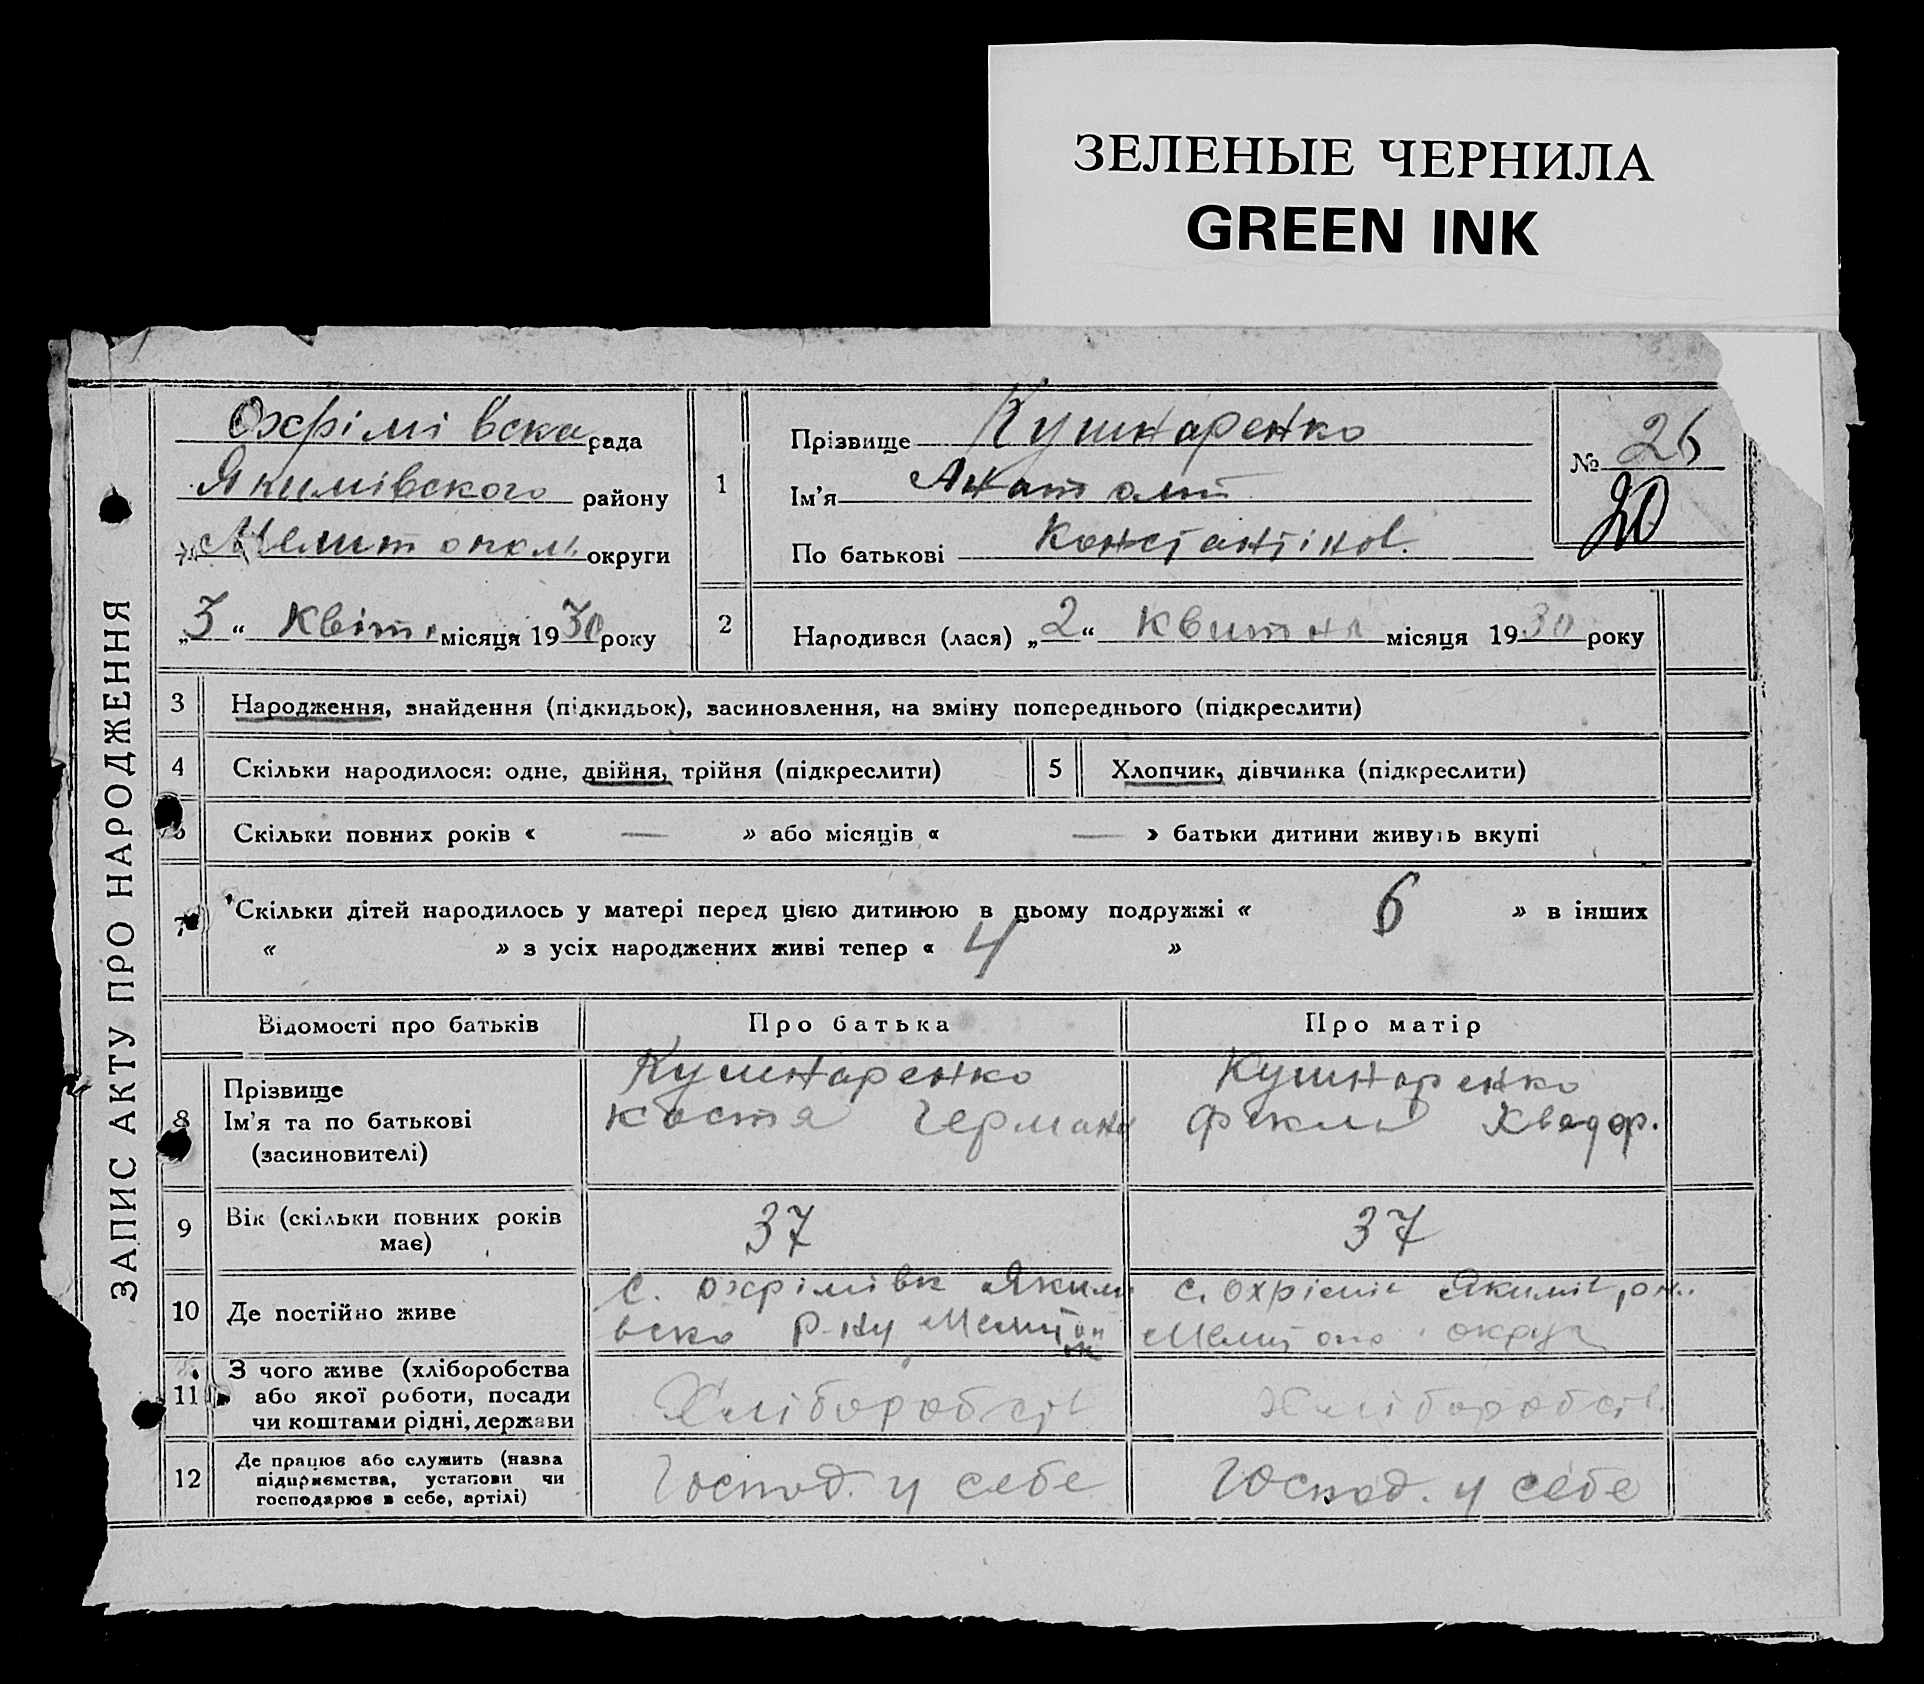 ЗЕЛЕНЫЕ ЧЕРНИЛА
GREEN INK
ЗАПИС АКТУ ПРО НАРОДЖЕННЯ
Охрімівска рада
Якимівского району
Мелитополь округи
„3“ Квітн місяця 1930 року
1
Прізвище Кушнаренко
Ім'я Анатолій
По батькові Константінов.
№ 26
20
2
Народився (лася) „2“ Квитня місяця 1930 року
3 Народження, знайдення (підкидьок), засиновлення, на зміну попереднього (підкреслити)
4 Скільки народилося: одне, двійня, трійня (підкреслити)
5 Хлопчик, дівчинка (підкреслити)
6 Скільки повних років « — » або місяців « — » батьки дитини живуть вкупі
7 Скільки дітей народилось у матері перед цією дитиною в цьому подружжі « 6 » в інших
« » з усіх народжених живі тепер « 4 »
Відомості про батьків
Про батька
Про матір
8 Прізвище
Ім'я та по батькові
(засиновителі)
Кушнаренко
Костя Герман
Кушнаренко
Фекла Хведор.
9 Вік (скільки повних років
має)
37
37
10 Де постійно живе
с. Охрімівк Якимі
вско р-ну Мелитоп
с. Охрімів Якимів
Мелитопо округ
11 З чого живе (хліборобства
або якої роботи, посади
чи коштами рідні, держави
Хліборобств
Хліборобств.
12 Де працює або служить (назва
підприємства, установи чи
господарює в себе, артілі)
Господ. у себе
Господ. у себе